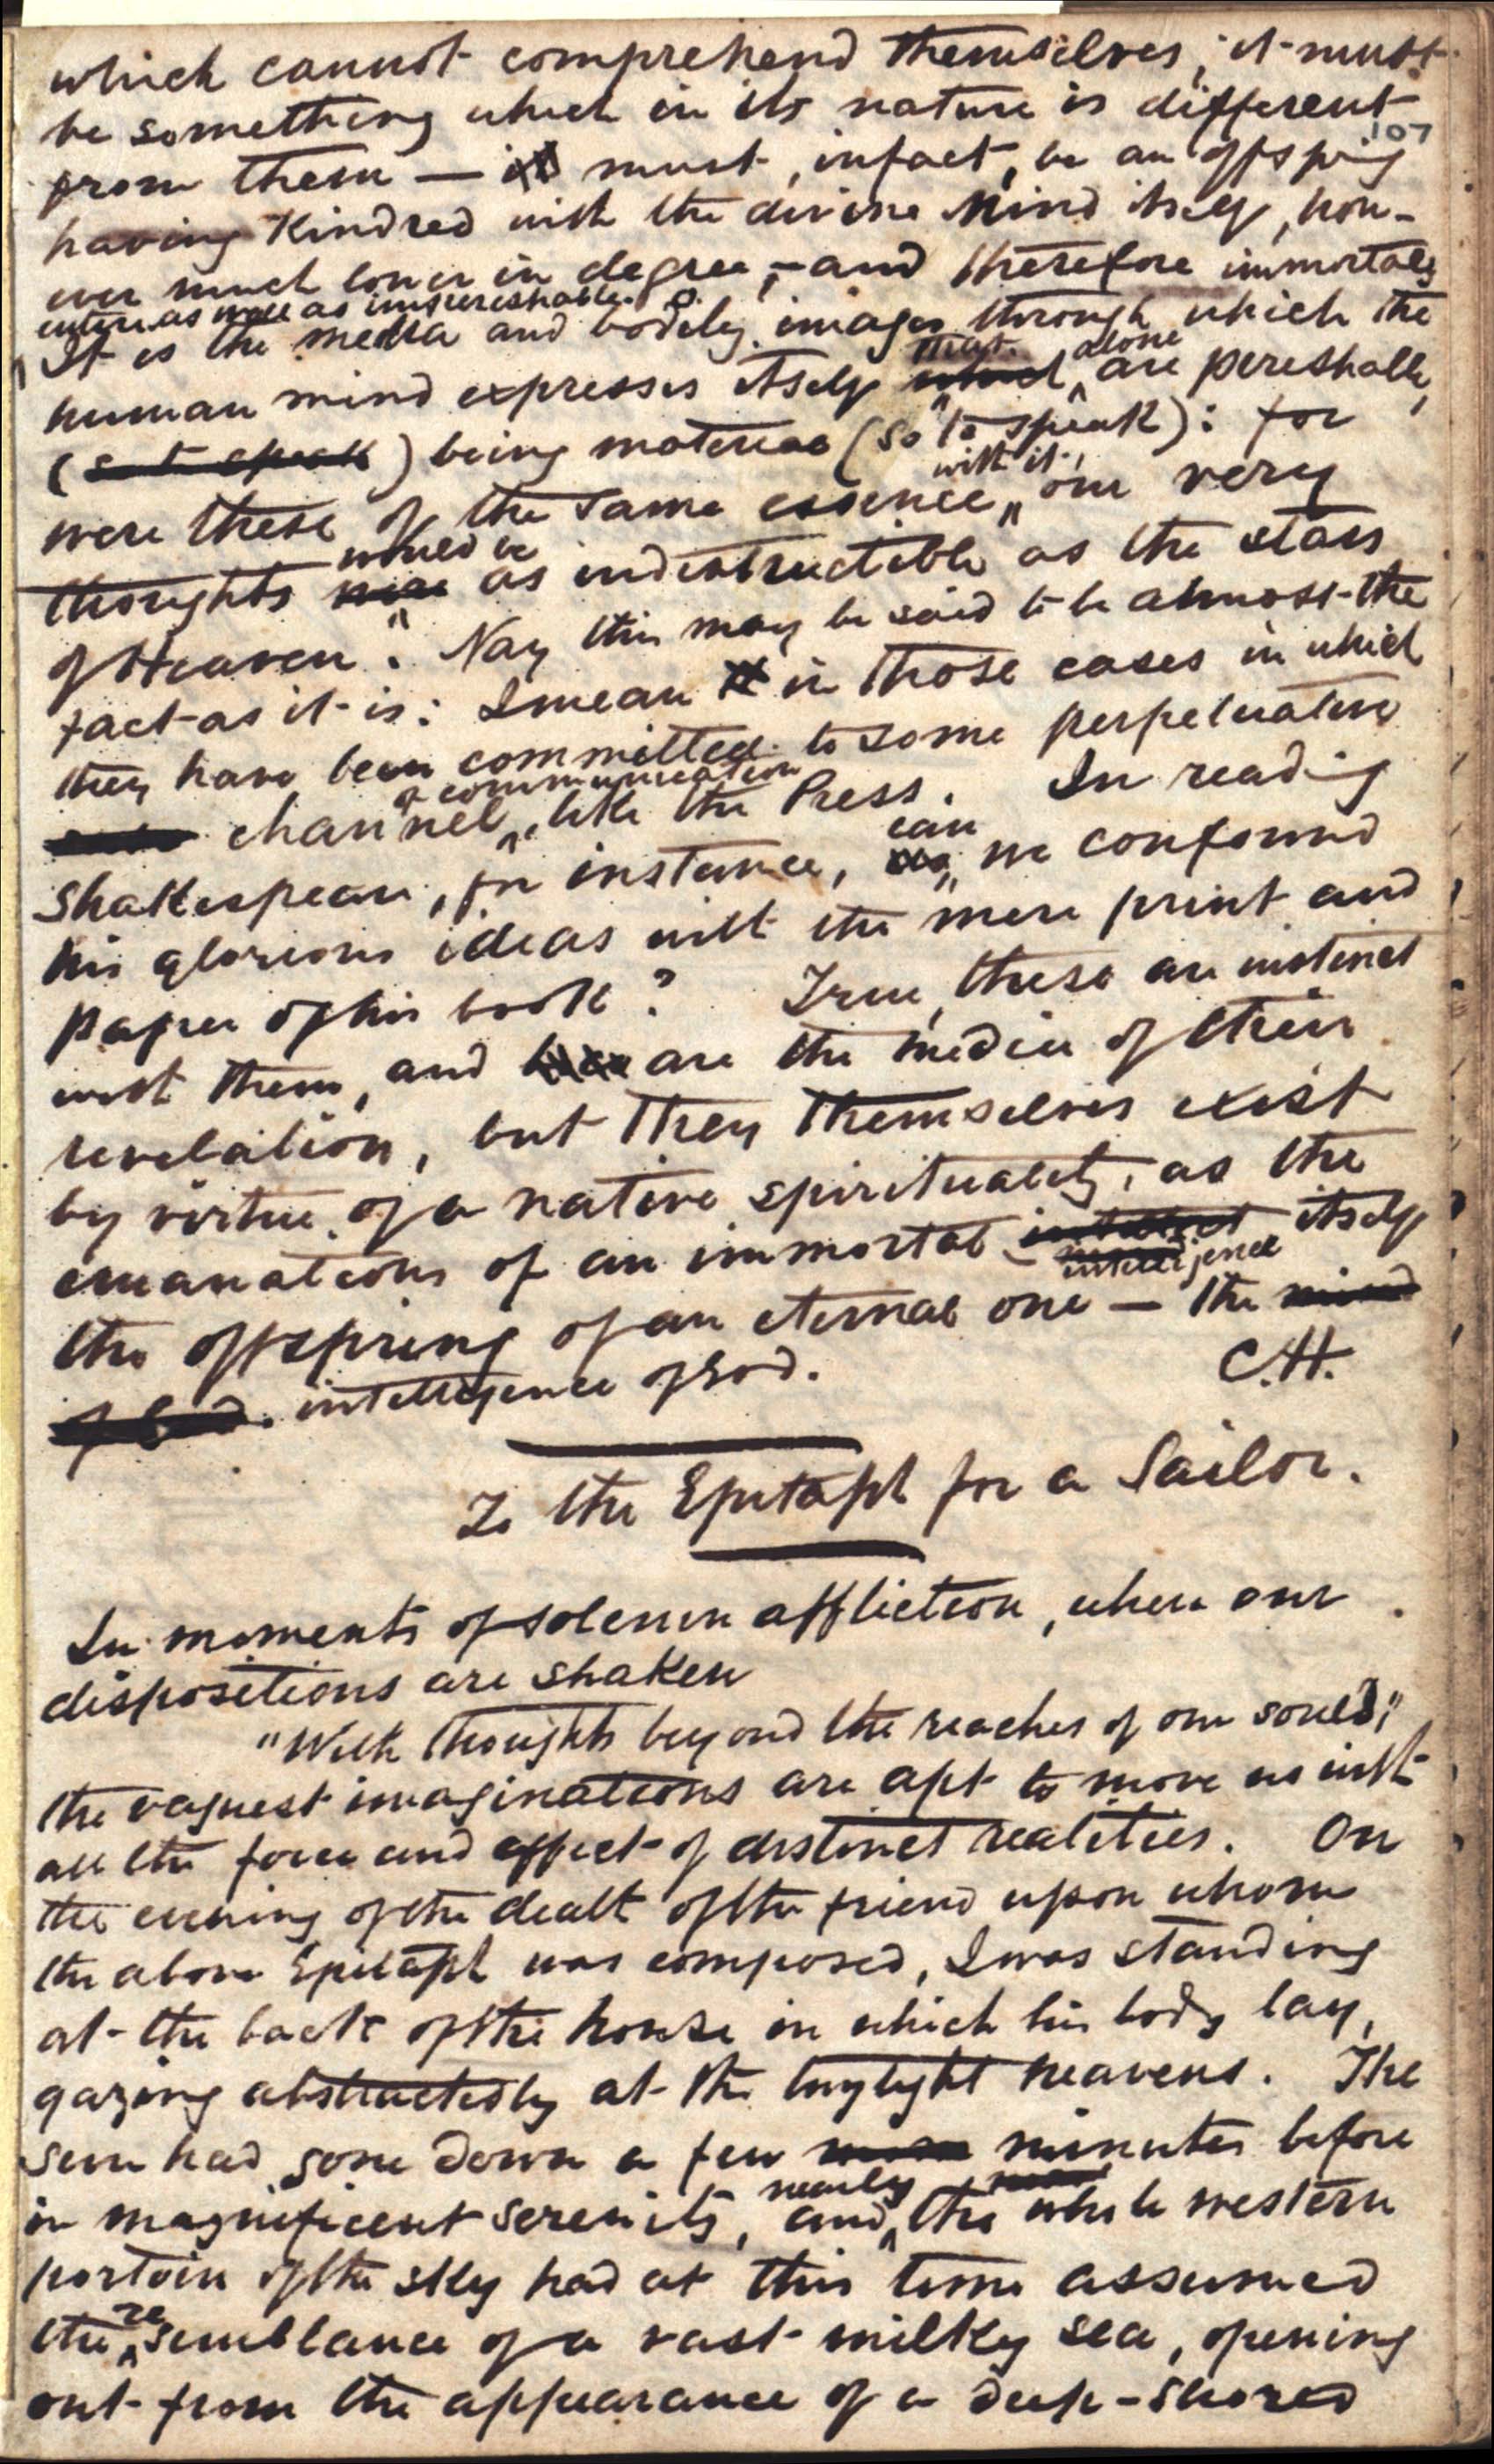 which cannot comprehend themselves, it must
be something which in its nature is different
107
from them — it must, infact, be an offspring
having Kindred with the divine Mind itself, how-
ever much lower in degree, — and therefore immortal
entire as well as imperishable.
It is the media and bodily images through which the
that alone
human mind expresses itself which are perishable,
(so to speak) being material (so to speak): for
with it,
were these of the same essence, our very
would be
thoughts were as indestructible as the stars
of Heaven. Nay this may be said to be almost the
fact as it is: I mean in those cases in which
they have been committed to some perpetuating
of communication
channel, like the Press. In reading
can
Shakespear, for instance, do we confound
his glorious ideas with the mere print and
paper of his book? True, these are instinct
with them, and are the media of their
revelation, but they themselves exist
by virtue of a native spirituality, as the
emanations of an immortal intellect itself
intelligence
the offspring of an eternal one — the mind
of God. intelligence of God. C.H.
To the Epitaph for a Sailor.
In moments of solemn affliction, when our
dispositions are shaken
"With thoughts beyond the reaches of our souls,"
the vaguest imaginations are apt to move us with
all the force and effect of distinct realities. On
the evening of the death of the friend upon whom
the above Epitaph was composed, I was standing
at the back of the house in which his body lay,
gazing abstractedly at the twylight heavens. The
sun had gone down a few minutes before
nearly
in magnificent serenity, and the whole western
portoin of the sky had at this time assumed
re
the semblance of a vast milky sea, opening
out from the appearance of a deep-shored